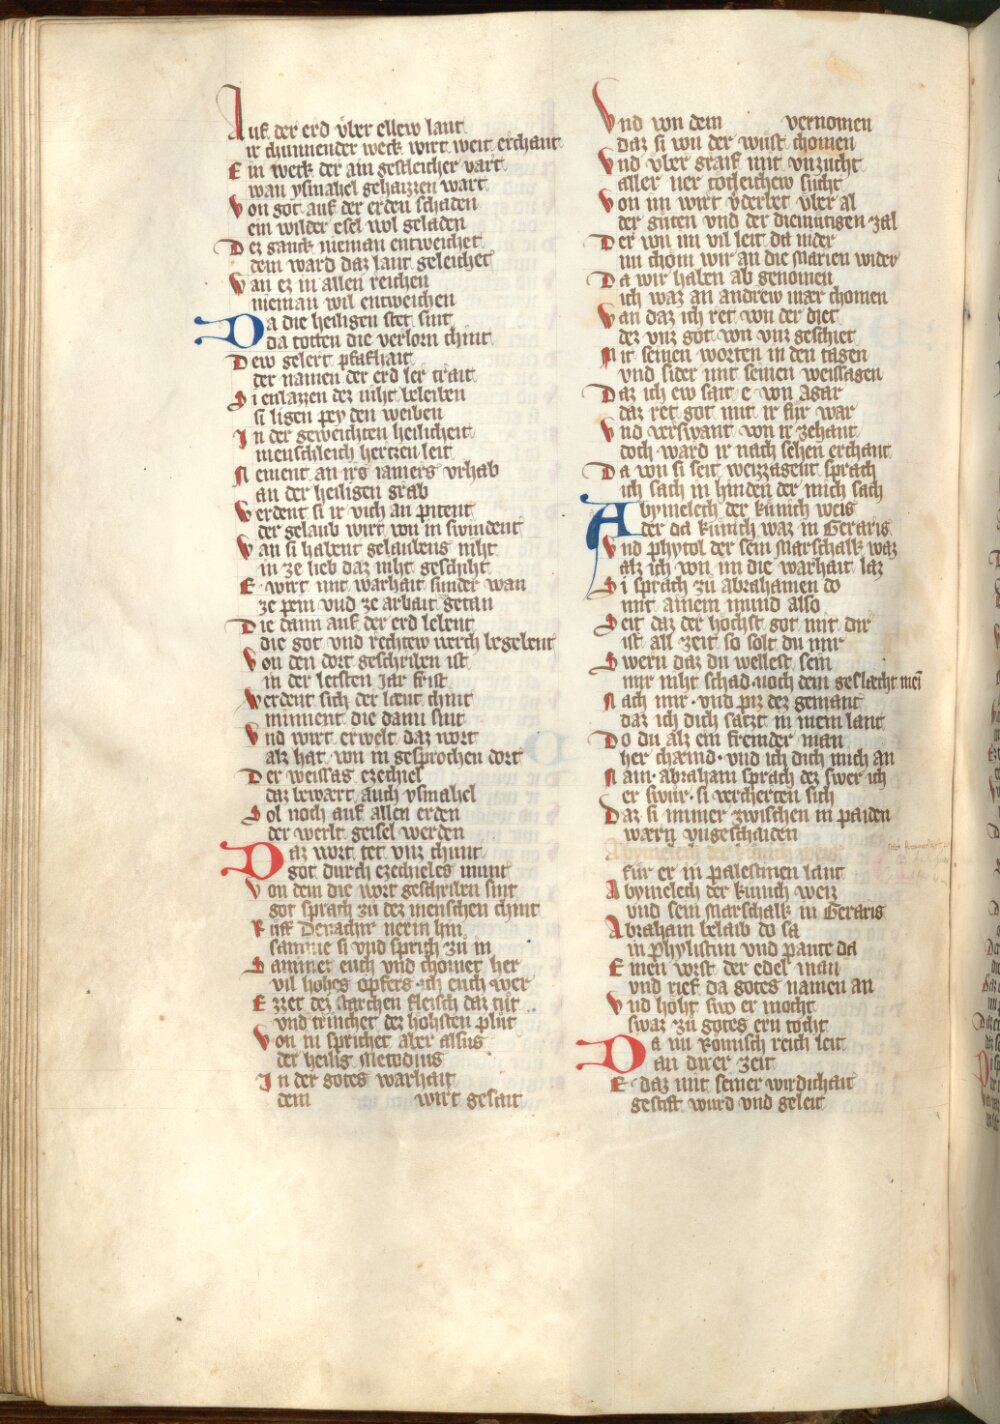 Auf der erd vber ellew lant
ir chunnender weck wirt weit erchant
Ein werk der ain gesleicher vart
wan ysmahel gehaizzen wart
Von got auf der erden schaden
ein wilder esel wol geladen
Der ganck nieman entweichet
dem ward daz lant geleichet
Wan ez in allen reichen
nieman wil entweichen
Da die heiligen stet sint
da totten die verlorn chint
Dew gelert pfafhait
der namen der erd ler trait
Si enslazzen dez niht beleiben
si ligen pey den weiben
In der geweichten heilicheit
menschleich hertzen leit
Nement an irs iamers vrhab
an der heiligen grab
Werdent si ir vich an pitent
der gelaub wirt von in swindent
Wan si habent gelaubens niht
in ze lieb daz niht geschiht
E wirt mit warhait sunder wan
ze pein vnd ze arbait getan
Die dann auf der erd lebent
die got vnd rechtew werch begebent
Von den dort geschriben ist
in der letsten iar frist
Werdent sich der lent chint
minnent die dann sint
Vnd wirt erwelt daz wort
alz hat von in gesprochen dort
Der weissag ezechiel
daz bewært auch ysmahel
Sol noch auf allen erden
der werlt geisel werden
Daz wort tet vnz chunt
got durch ezechieles munt
Von dem die wort geschriben sint
got sprach zu dez menschen chint
Rueff
samme si vnd sprich zu in
Sammet euch vnd chomet her
vil hohes opfers ich euch wer
Ezzet dez starchen fleisch daz tut
vnd trinchet dez hohsten plut
Von in sprichet aber alsus
der heilig Metodius
In der gotes warhait
dem wirt gesait
Vnd von dem vernomen
daz si von der wust chomen
Vnd vber graif mit vnzucht
aller ir totleichew sucht
Von im wirt verderbet vber al
der guten vnd der diemutigen zal
Der von im vil leit da nider
nu chom wir an die Marien wider
Da wir haben ab genomen
ich waz an andrew mær chomen
Wan daz ich ret von der diet
dez vnz got von vnz geschiet
Mit seinen worten in den tagen
vnd sider mit seinen weissagen
Daz ich ew sait e von Agar
daz ret got mit ir fur war
Vnd verswant von ir zehant
doch ward ir nach sehen erchant
Da von si seit weizzagent sprach
ich sach in hinden der mich sach
Abymelech der kunich weis
der da kunich waz in Geraris
Vnd phytol der sein Marschalk waz
alz ich von im die warhait laz
Si sprach zu abrahamen do
mit ainem mund also
Seit daz der hochst got mit dir
ist all zeit so solt du mir
Swern daz du wellest sein
mir niht schad noch dem geslæcht mein
Nach mir vnd piz dez gemant
daz ich dich satzt in mein lant
Do du alz ein fremder man
her chæmd vnd ich dich mich an
Nam abraham sprach dez swer ich
er swur si vercherten sich
Daz si immer zwischen in paiden
wærn vngeschaiden
fur er in palestinen lant
Abymelech der kunich weiz
vnd sein Marschalk in Geraris
Abraham belaib do sa
in phylistim vnd pante da
Einen vorst der edel man
vnd rief da gotes namen an
Vnd hoht swo er mocht
swaz zu gotes ern tocht
Da nu Romisch reich leit
an direr zeit
E daz mit seiner wirdichait
gestift wurd vnd geleit